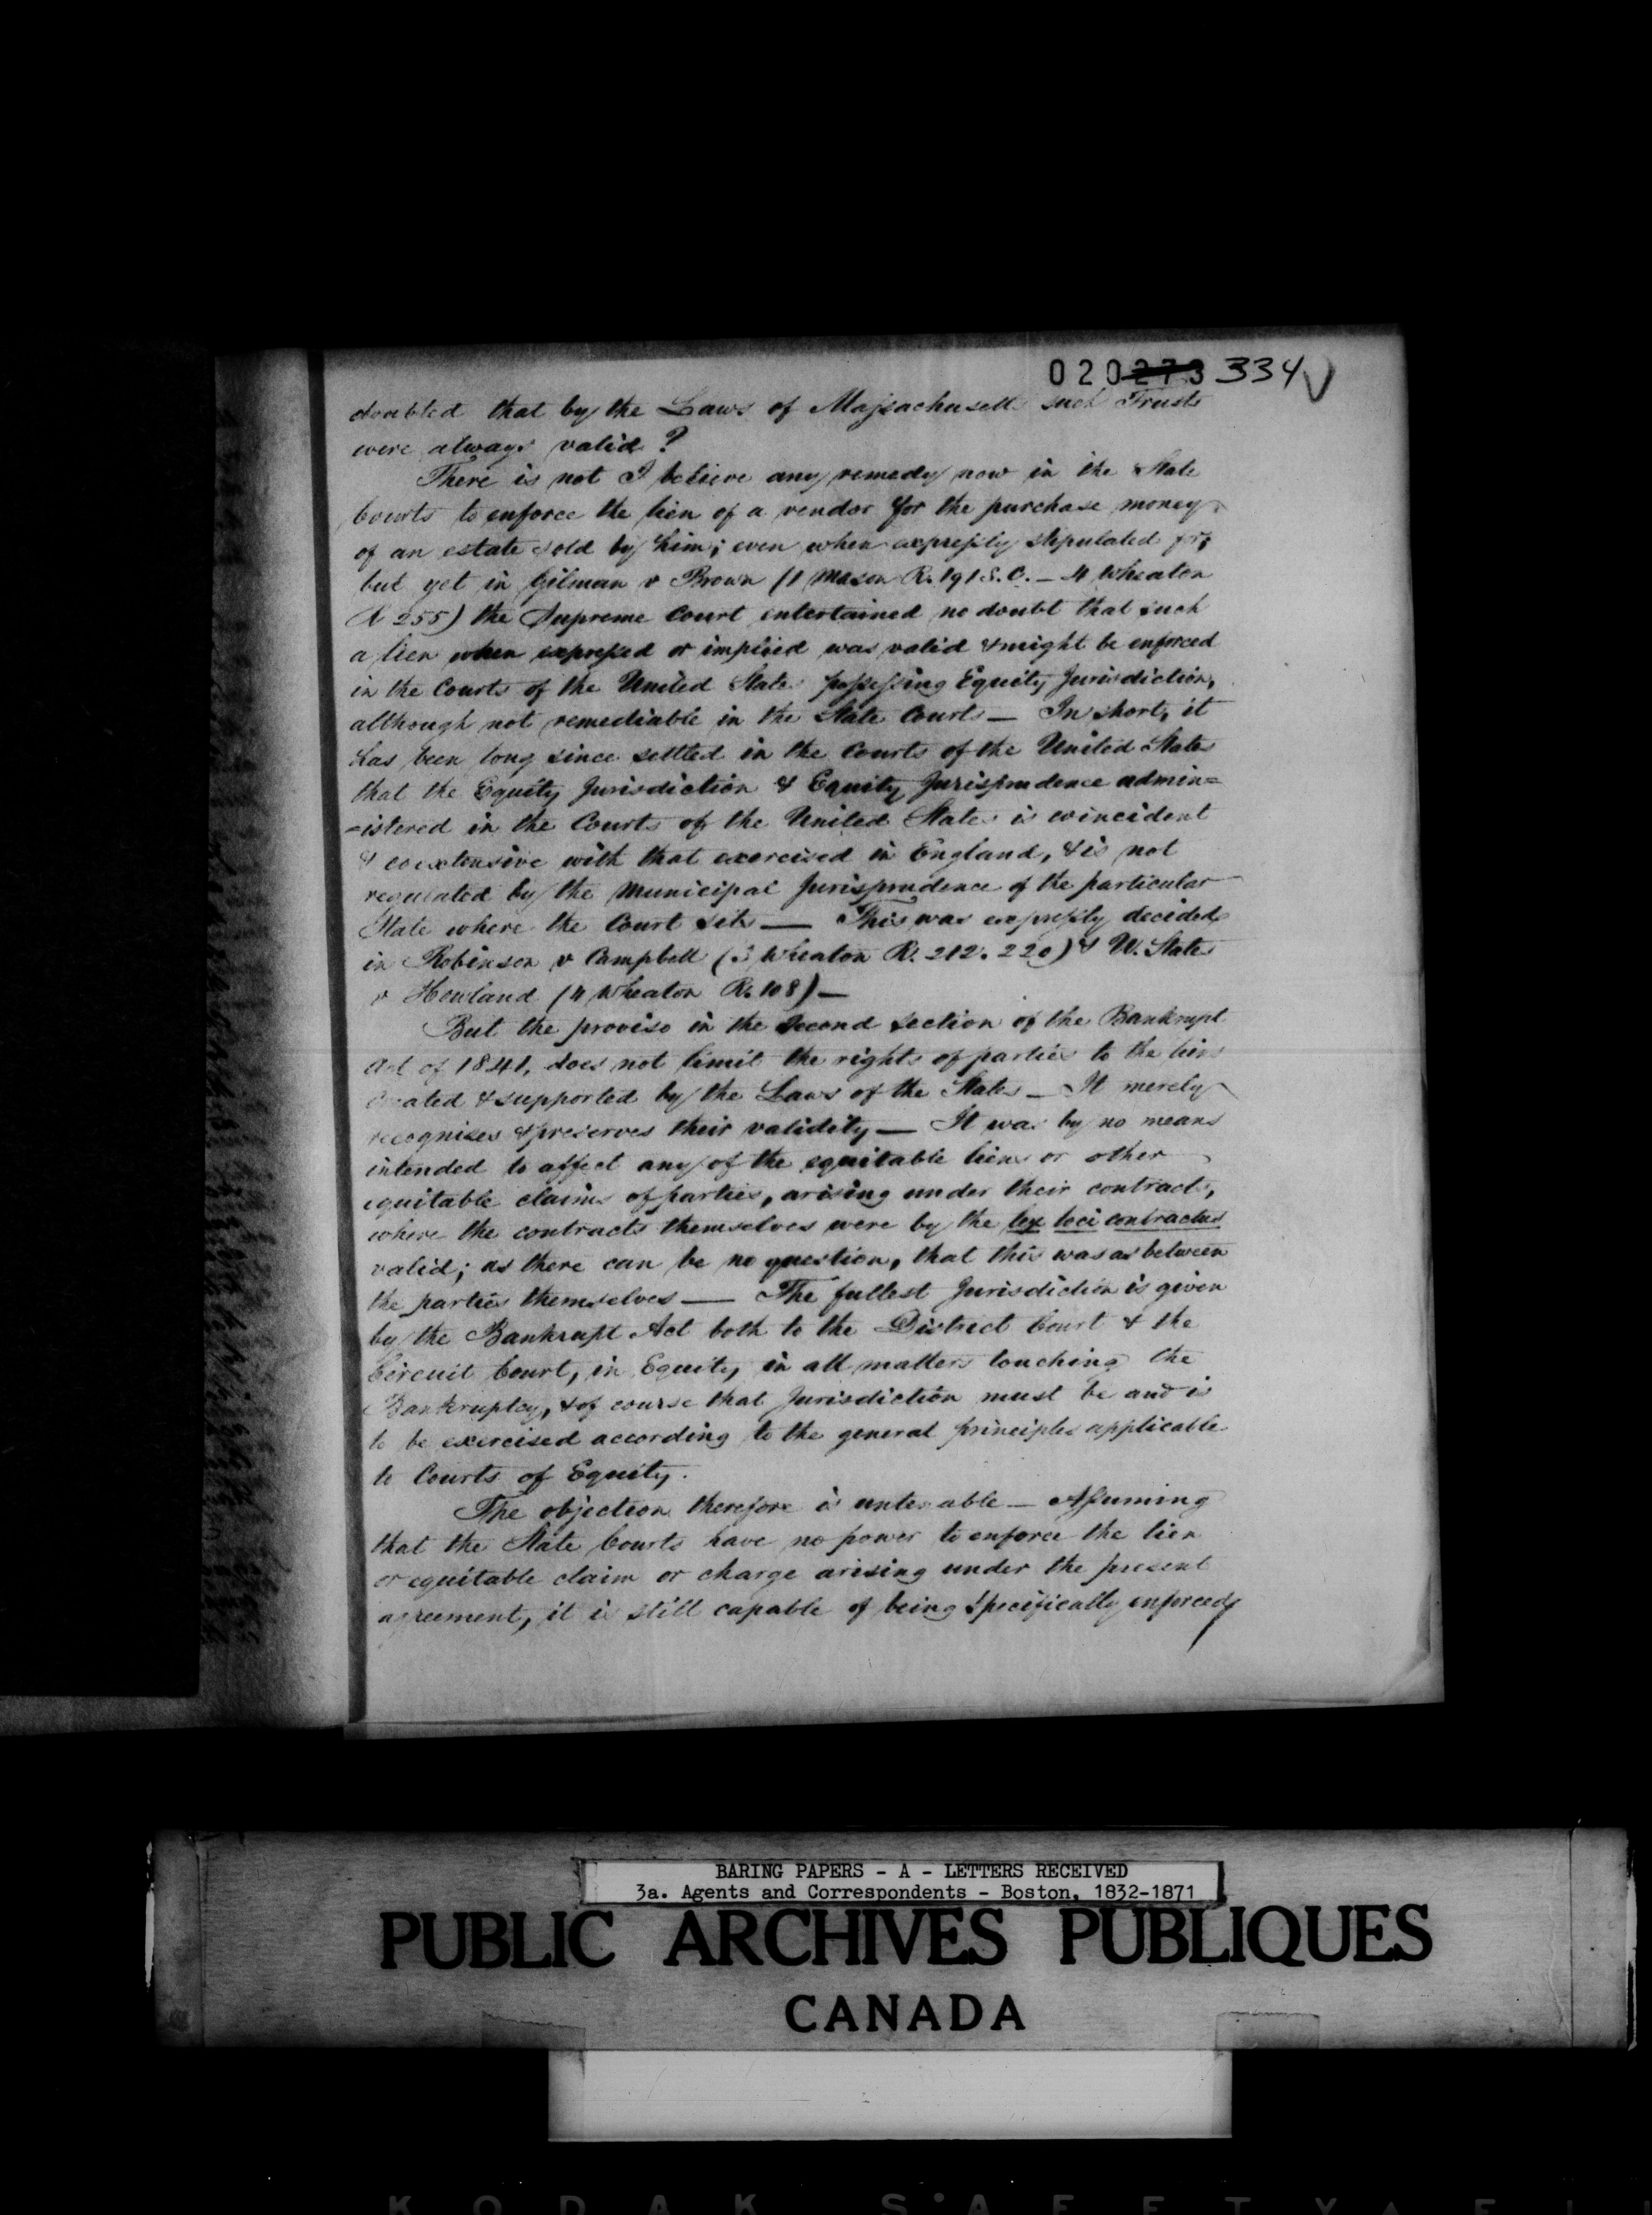 020273 334
doubted that by the Laws of Massachusetts such Trusts
were always valid?
There is not I believe any remedy now in the State
Courts to enforce the lien of a vendor for the purchase money
of an estate sold by him; even when expressly stipulated for;
but yet in Gilman v Brown (1 Mason R. 191 S.C. — 4 Wheaton
R 255) the Supreme Court entertained no doubt that such
a lien when expressed or implied was valid & might be enforced
in the Courts of the United States possessing Equity Jurisdiction,
although not remediable in the State Courts — In short, it
has been long since settled in the Courts of the United States
that the Equity Jurisdiction & Equity Jurisprudence admin=
=istered in the Courts of the United States is coincident
& coextensive with that exercised in England, & is not
regulated by the Municipal Jurisprudence of the particular
State where the Court sits — This was expressly decided
in Robinson v Campbell (3 Wheaton R. 212. 220) & U. States
v Howland (4 Wheaton R. 108) —
But the proviso in the Second Section of the Bankrupt
Act of 1841, does not limit the rights of parties to the liens
created & supported by the Laws of the States — It merely
recognizes & preserves their validity — It was by no means
intended to affect any of the equitable liens or other
equitable claims of parties, arising under their contracts,
where the contracts themselves were by the lex loci contractus
valid; as there can be no question, that this was as between
the parties themselves — The fullest Jurisdiction is given
by the Bankrupt Act both to the District Court & the
Circuit Court, in Equity, in all matters touching the
Bankruptcy, & of course that Jurisdiction must be and is
to be exercised according to the general principles applicable
to Courts of Equity.
The objection therefore is untenable — Assuming
that the State Courts have no power to enforce the lien
or equitable claim or charge arising under the present
agreement, it is still capable of being specifically enforced
BARING PAPERS - A - LETTERS RECEIVED
3a. Agents and Correspondents - Boston, 1832-1871
PUBLIC ARCHIVES PUBLIQUES
CANADA
KODAK SAFETY